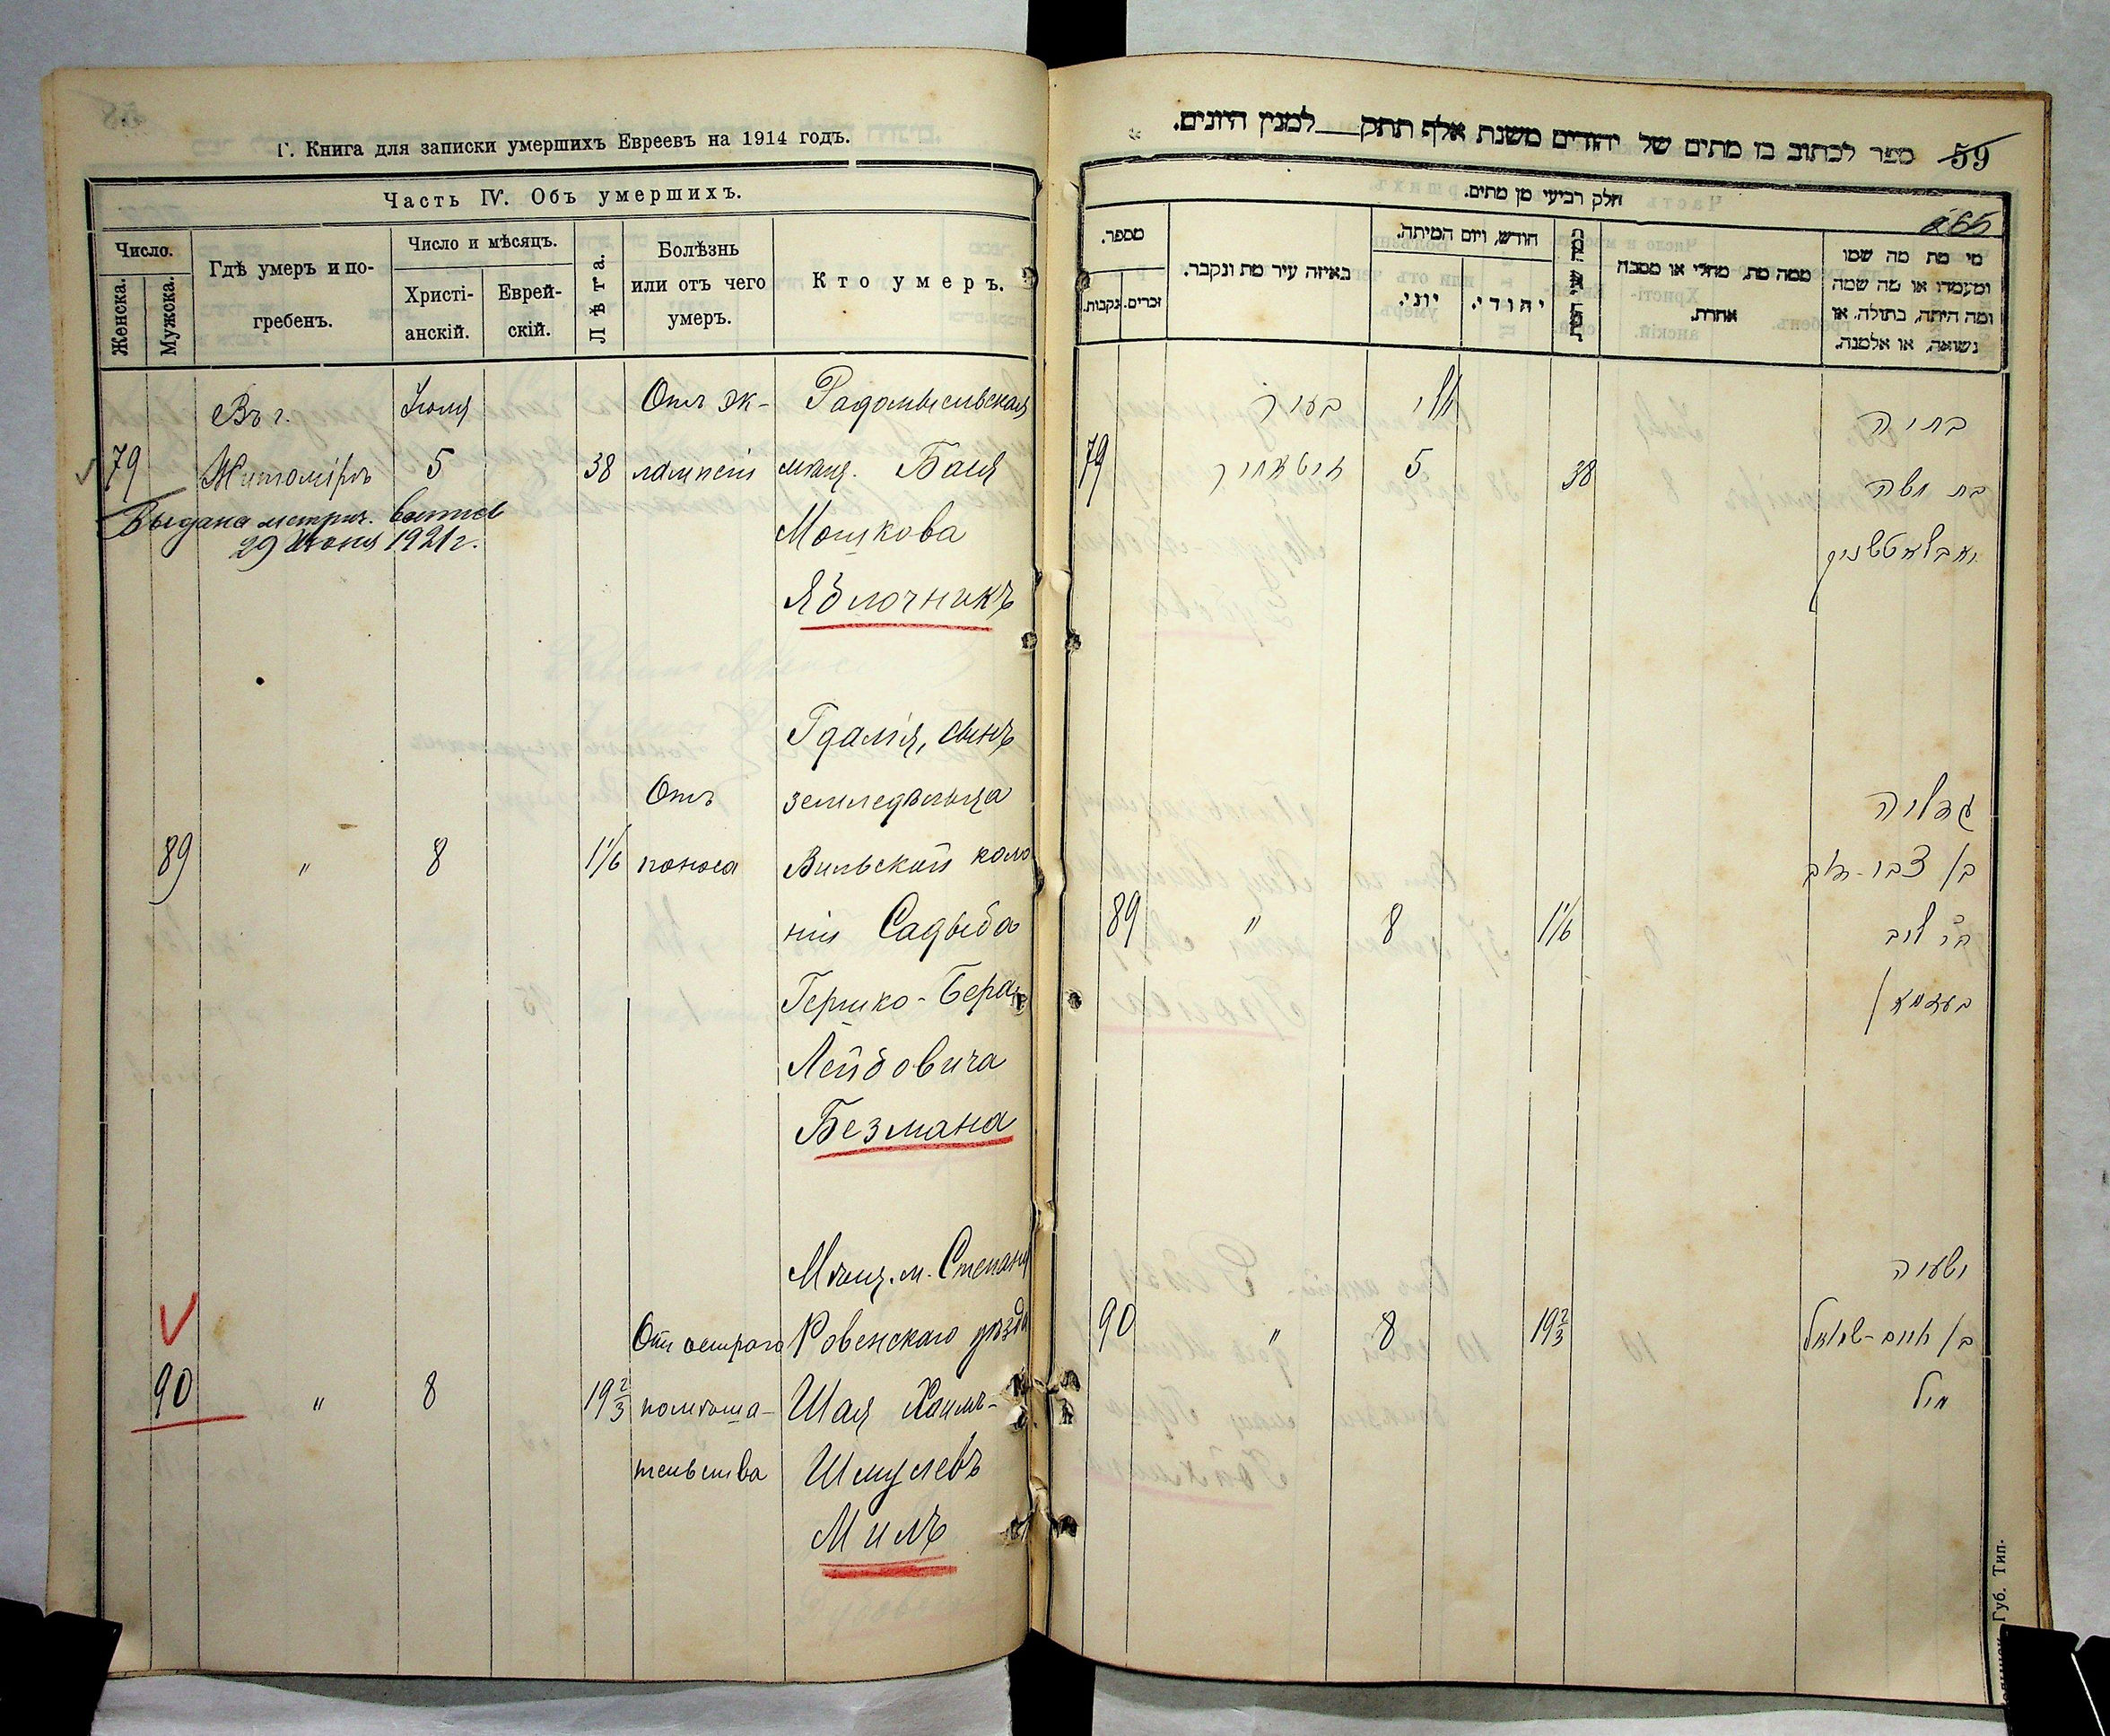 Г. Книга для записки умершихъ Евреевъ на 1914 годъ.
Часть IV. Объ умершихъ.
Число.
Женска.
Мужска.
Гдѣ умеръ и по-
гребенъ.
Число и мѣсяцъ.
Христі-
анскій.
Еврей-
скій.
Лѣта.
Болѣзнь
или отъ чего
умеръ.
Кто умеръ.
Въ г. Іюля Отъ эк- Радомысльская
79 Житомірѣ 5 38 лампсіи мѣщ. Бася
Выдана метрич. выпись
29 Іюня 1921 г.
Мошкова
Яблочникъ
Гдалія, сынъ
Отъ земледѣльца
89 " 8 1 1/6 поноса Вильской коло
ніи Садыба
Гершко-Бера
Лейбовича
Безмана
Мѣщ. м. Степаня
Отъ остраго Ровенскаго уѣзда
90 " 8 19 2/3 помѣша- Шая Хаимъ-
тельства Шмулевъ
Милъ
59
ספר לכתוב בו מתים של יהודים משנת אלף תתק למנין היונים.
חלק רביעי מן מתים.
מספר.
נקבות.
זכרים.
באיזה עיר מת ונקבר.
חודש, ויום המיתה.
יוני.
יהודי.
כמה שני המת
ממה מת, מחלי או מסבה
אחרת.
מי מת מה שמו
ומעמדו או מה שמה
ומה היתה, בתולה, או
נשואה, או אלמנה.
בעיר יולי בתיה
79 זיטאמיר 5 38 בת משה
יאבלאטשניק
גדליה
בן צבי-דוב
89 " 8 1 1/6 בר ליב
בעזמאן
ישעיה
90 " 8 19 2/3 בן חיים-שמואל
מיל
Губ. Тип.